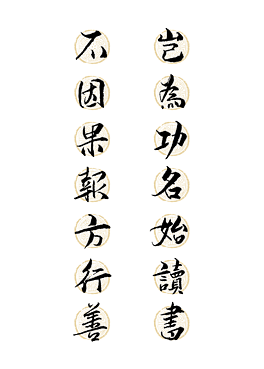 豈為功名始讀書
不因果報方行善